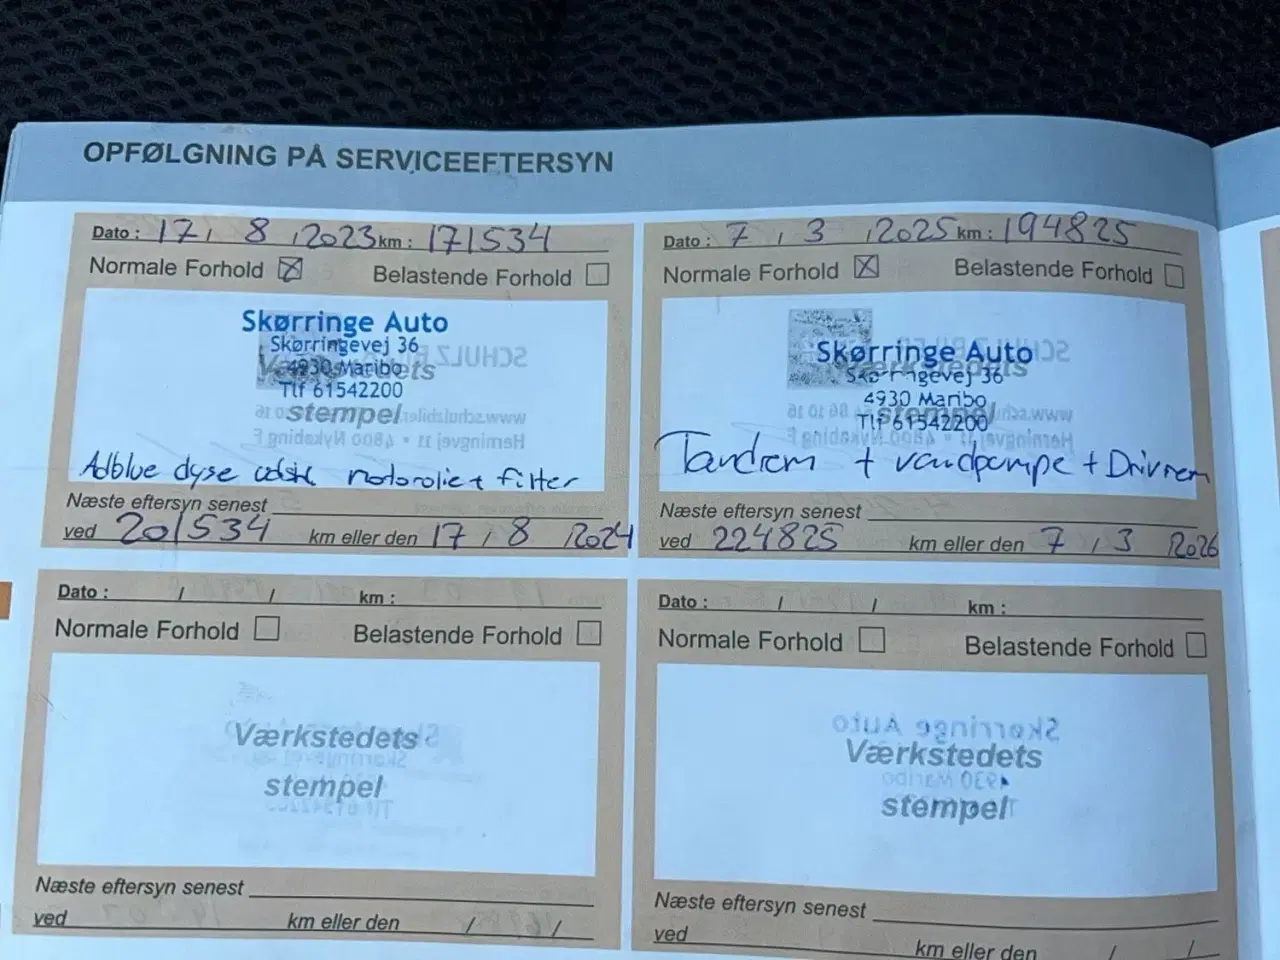 OPFØLGNING PÅ SERVICEEFTERSYN
Dato : 17 / 8 / 2023 km : 171534
Normale Forhold ☒ Belastende Forhold ☐
Skørringe Auto
Skørringevej 36
4930 Maribo
Værkstedets
Tlf 61542200
stempel
Adblue dyse udsk motorolie + filter
Næste eftersyn senest
ved 201534 km eller den 17 / 8 / 2024
Dato : 7 / 3 / 2025 km : 194825
Normale Forhold ☒ Belastende Forhold ☐
Skørringe Auto
Værkstedets
Skørringevej 36
4930 Maribo
stempel
Tlf 61542200
Tandrem + vandpumpe + Drivrem
Næste eftersyn senest
ved 224825 km eller den 7 / 3 / 2026
Dato : / / km :
Normale Forhold ☐ Belastende Forhold ☐
Værkstedets
stempel
Næste eftersyn senest
ved km eller den / /
Dato : / / km :
Normale Forhold ☐ Belastende Forhold ☐
Værkstedets
stempel
Næste eftersyn senest
ved km eller den / /